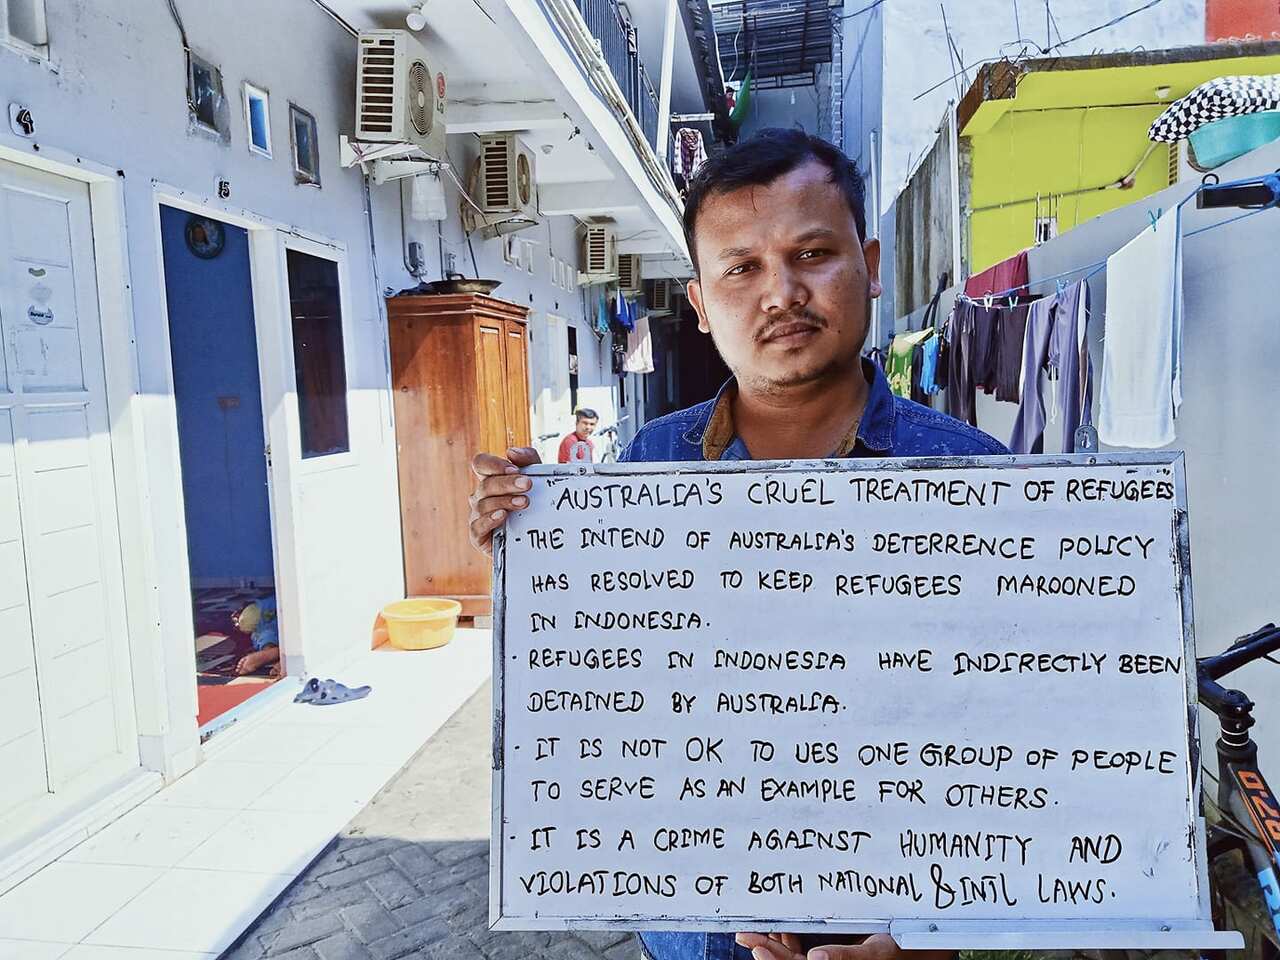 4
5
LG
"AUSTRALIA'S CRUEL TREATMENT OF REFUGEES
· THE INTEND OF AUSTRALIA'S DETERRENCE POLICY
HAS RESOLVED TO KEEP REFUGEES MAROONED
IN INDONESIA.
· REFUGEES IN INDONESIA HAVE INDIRECTLY BEEN
DETAINED BY AUSTRALIA.
· IT IS NOT OK TO UES ONE GROUP OF PEOPLE
TO SERVE AS AN EXAMPLE FOR OTHERS.
· IT IS A CRIME AGAINST HUMANITY AND
VIOLATIONS OF BOTH NATIONAL & INT'L LAWS.